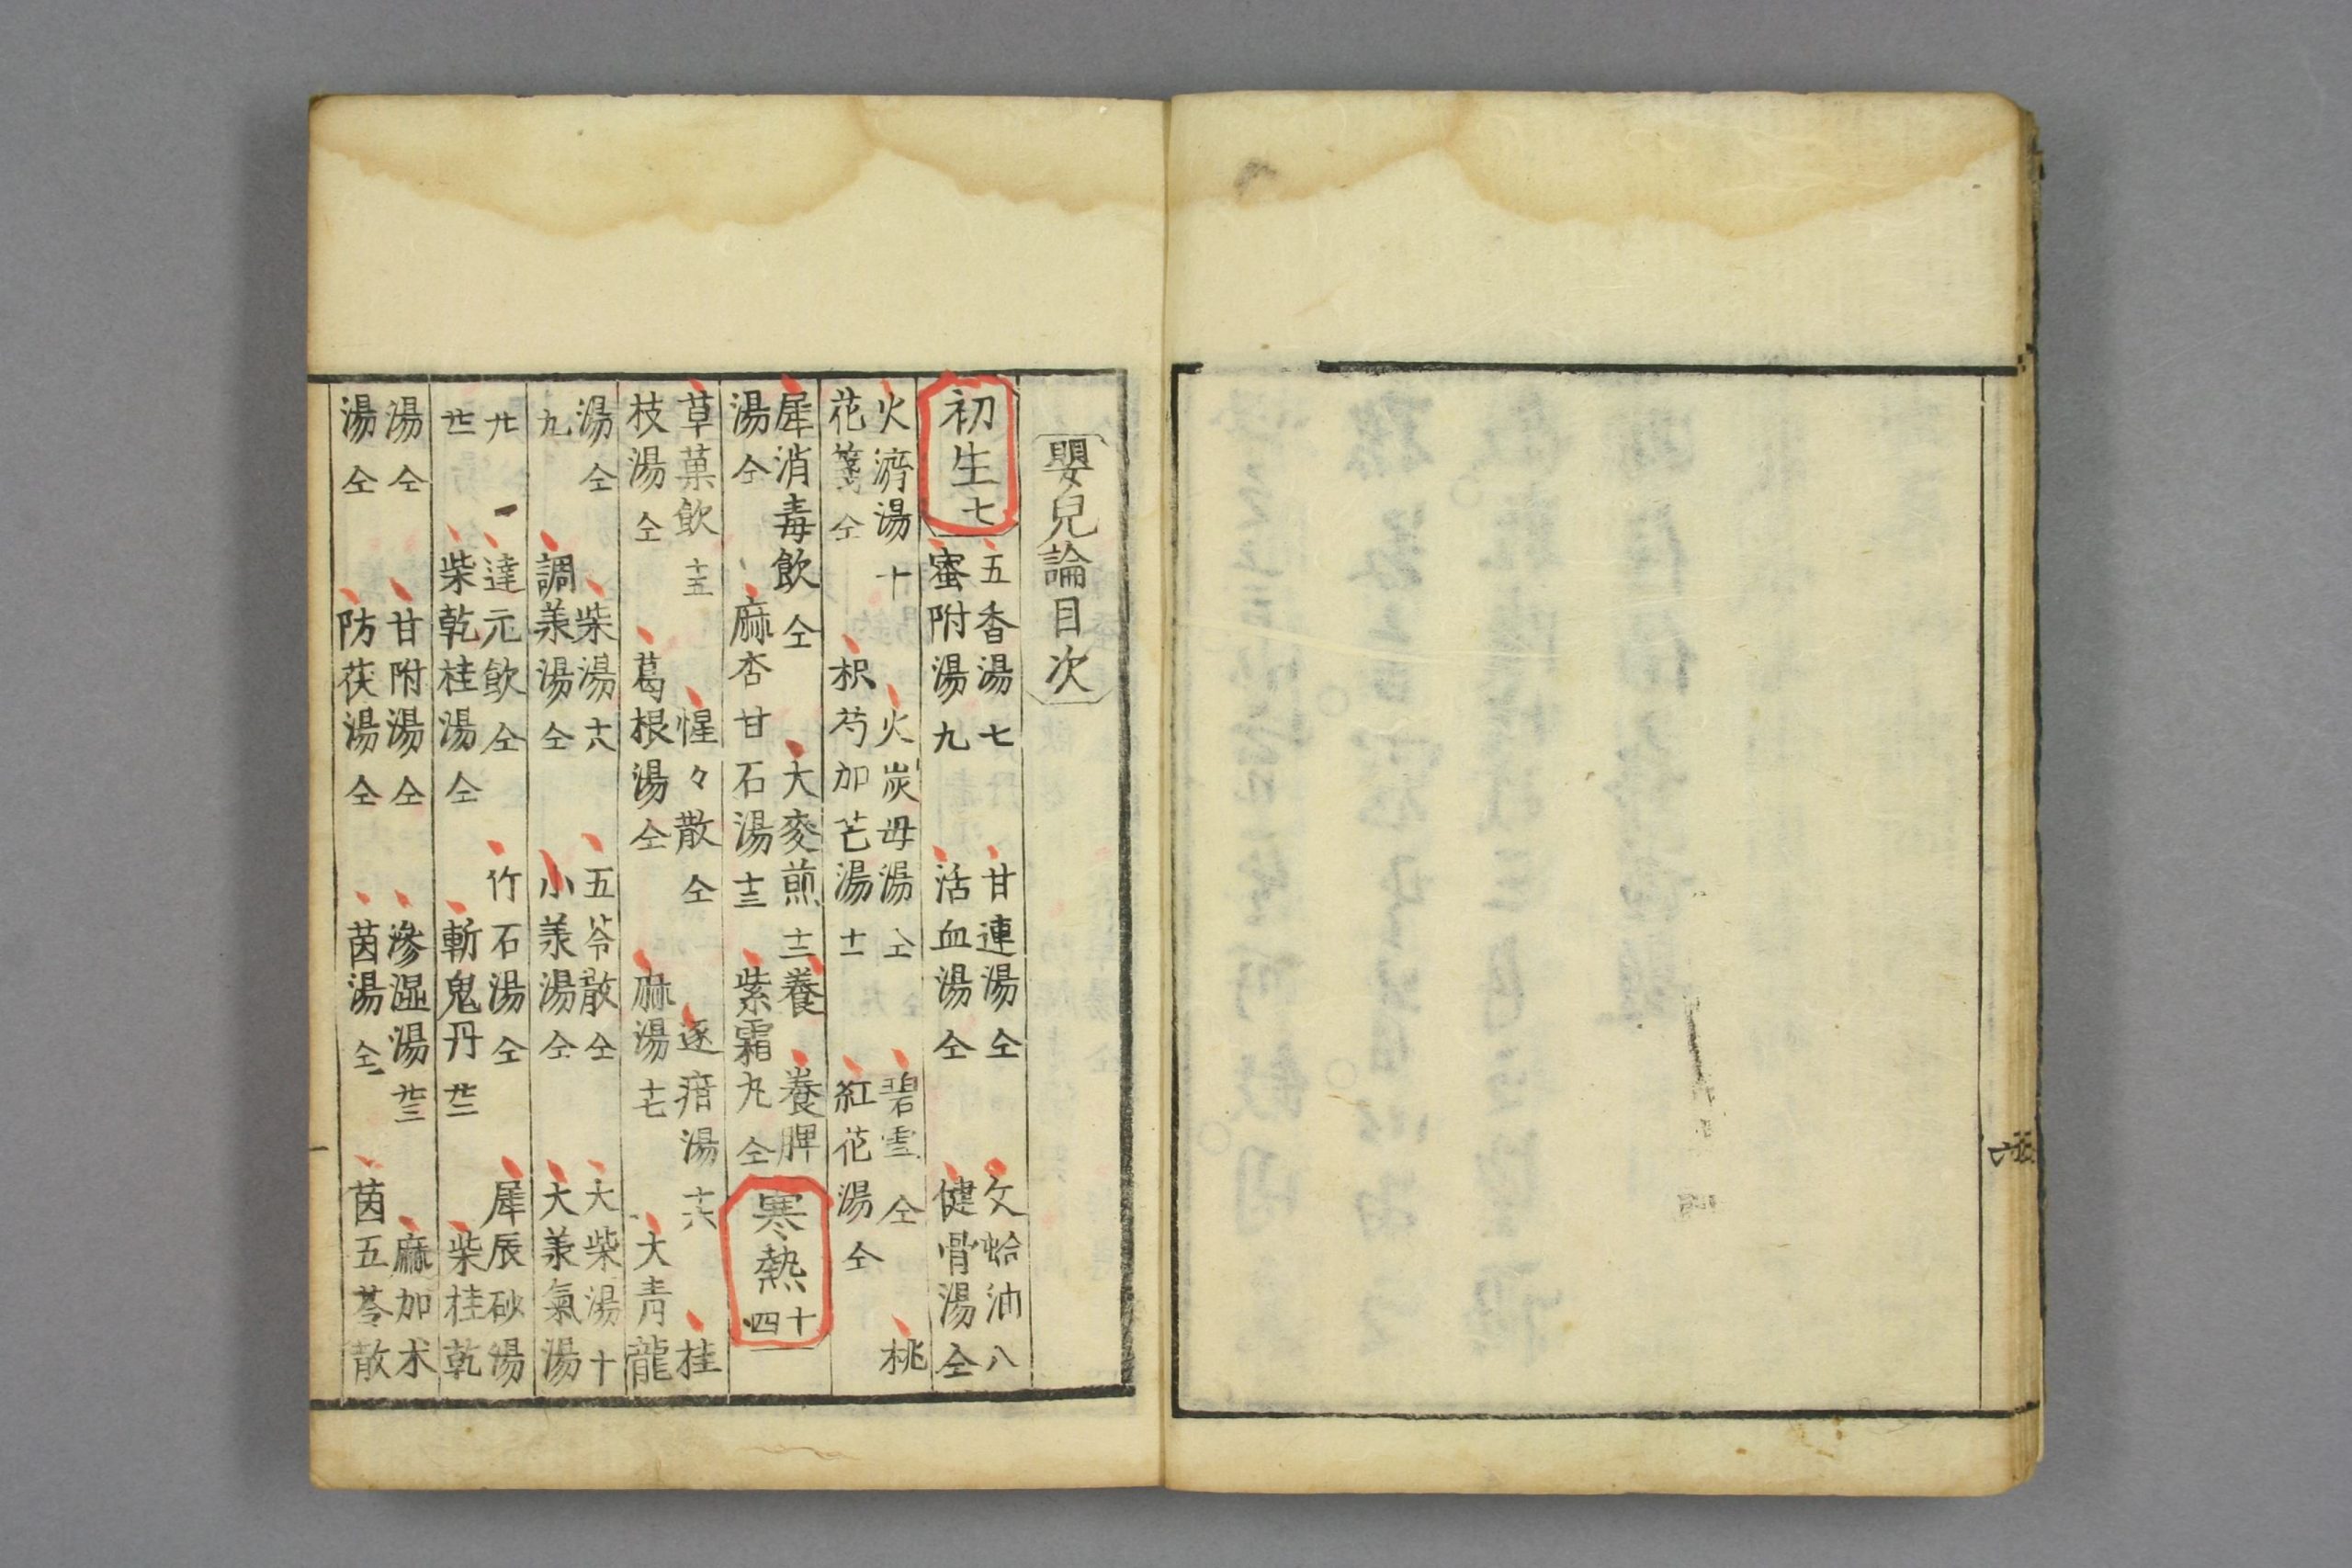 嬰兒論目次
初生七
五香湯七 甘連湯仝 文蛤油八
蜜附湯九 活血湯仝 健骨湯仝
火濟湯十 火炭母湯仝 碧雪仝 桃
花箋仝 枳芍加芒湯十一 紅花湯仝
犀消毒飲仝 大麥煎十二 養脾
湯仝 麻杏甘石湯十三 紫霜丸仝
寒熱十四
草菓飲十五 惺々散仝 逐瘄湯十六 桂
枝湯仝 葛根湯仝 麻湯十七 大青龍
湯仝 柴湯十八 五苓散仝 大柴湯十
九 調承湯仝 小承湯仝 大承氣湯
廿 達元飲仝 竹石湯仝 犀辰砂湯
廿一 柴乾桂湯仝 斬鬼丹廿二 柴桂乾
湯仝 甘附湯仝 滲濕湯廿三 麻加朮
湯仝 防茯湯仝 茵湯仝 茵五苓散